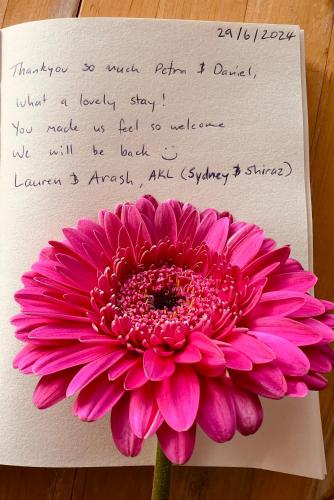 29/6/2024
Thankyou so much Petra & Daniel,
What a lovely stay!
You made us feel so welcome
We will be back :)
Lauren & Arash, AKL (Sydney & Shiraz)